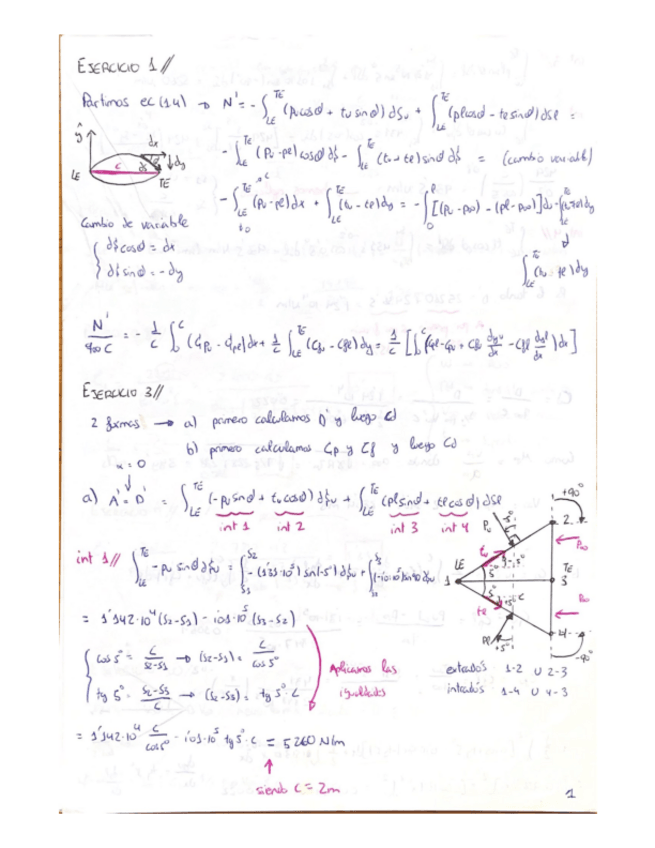 EJERCICIO 1//
Partimos ec (1.4) → N' = - ∫_LE^TE (pu cosθ + τu sinθ) dSu + ∫_LE^TE (pl cosθ - τl sinθ) dSl =
ŷ dx
dy
LE c dS TE
- ∫_LE^TE (pu - pl) cosθ dS - ∫_LE^TE (τu + τl) sinθ dS = (cambio variable)
- ∫_LE^TE (pu - pl) dx + ∫_LE^TE (τu - τl) dy = - ∫_0^c [(pu - p∞) - (pl - p∞)] dx
Cambio de variable
{ dS cosθ = dx
{ dS sinθ = - dy
∫_LE^TE (τu τl) dy
N'/q∞ c = - 1/c ∫_0^c (Cpu - Cpl) dx + 1/c ∫_LE^TE (Cfu - Cfl) dy = 1/c [ ∫_0^c (Cpl - Cpu + Cfu dyu/dx - Cfl dyl/dx) dx ]
EJERCICIO 3//
2 formas → a) primero calculamos D' y luego Cd
b) primero calculamos Cp y Cf y luego Cd
α = 0
a) A' = D' = ∫_LE^TE (-pu sinθ + τu cosθ) dSu + ∫_LE^TE (pl sinθ + τl cosθ) dSl
int 1 int 2 int 3 int 4
+90°
Pu 5° 2
int 1// ∫_LE^TE - pu sinθ dSu = ∫_S1^S2 - (1'31·10^5) sin(-5°) dSu + ∫_S2^S3 -(1'01·10^5) sin 90 dSu
LE τu 5° P∞ TE
1 5° 5° c 3
= 1'142·10^4 (S2-S1) - 1'01·10^5 (S3-S2)
τl P∞
Pl +5° 4
-90°
{ cos 5° = c/S2-S1 → (S2-S1) = c/cos 5°
{ tg 5° = S2-S3/c → (S2-S3) = tg 5°·c
Aplicamos las
igualdades
extradós 1-2 ∪ 2-3
intradós 1-4 ∪ 4-3
= 1'142·10^4 c/cos5° - 1'01·10^5 tg 5°·c = 5260 N/m
siendo c = 2m
1